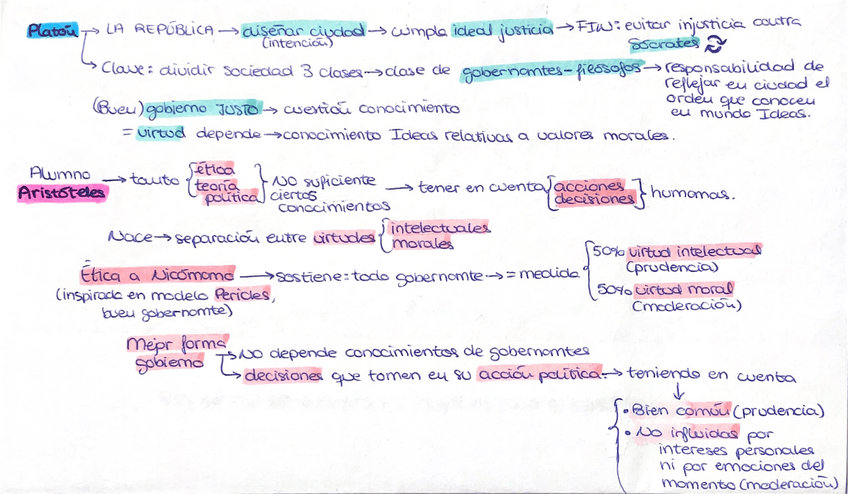 Platón → LA REPÚBLICA → diseñar ciudad → cumpla ideal justicia → FIN: evitar injusticia contra
(intención) Sócrates
Clave: dividir sociedad 3 clases → clase de gobernantes-filósofos → responsabilidad de
reflejar en ciudad el
orden que conocen
en mundo Ideas.
(Buen) gobierno JUSTO → cuestión conocimiento
= virtud depende → conocimiento Ideas relativas a valores morales.
Alumno
Aristóteles → tanto { ética
teoría
política } NO suficiente
ciertos
conocimientos → tener en cuenta [ acciones
decisiones ] humanas.
Nace → separación entre virtudes { intelectuales
morales
Ética a Nicómomo → sostiene: todo gobernante → = medida { 50% virtud intelectual
(prudencia)
50% virtud moral
(moderación)
(inspirada en modelo Pericles,
buen gobernante)
Mejor forma
gobierno → No depende conocimientos de gobernantes
→ decisiones que tomen en su acción política → teniendo en cuenta
↓
• Bien común (prudencia)
• No influidos por
intereses personales
ni por emociones del
momento (moderación)